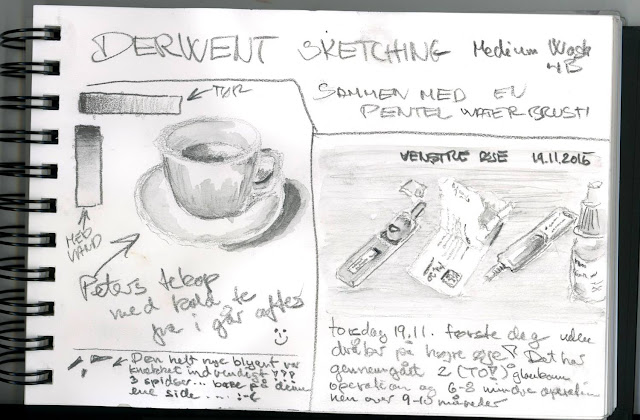 DERWENT SKETCHING Medium Wash
4B
SAMMEN MED EN
PENTEL WATERBRUSH
TØR
MED
VAND
Peters tekop
med kold te
fra i går aftes
Den helt nye blyant var
knækket indvendigt !?!?
3 spidser... bare på denne
ene side .... :-(
VENSTRE ØJE 19.11.2015
torsdag 19.11. første dag uden
dråber på højre øje! Det har
gennemgået 2 (TO!) glaukom
operation og 6-8 mindre operationer
hen over 9-10 måneder